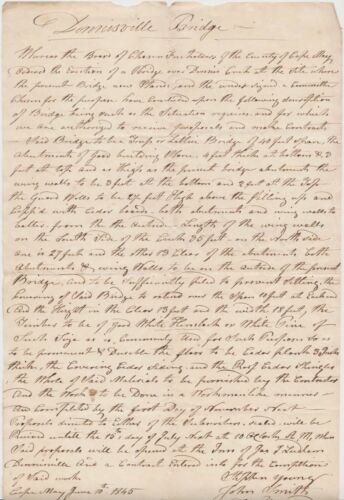 Dennisville Bridge
Whereas the Board of Chosen Freeholders of the County of Cape May
Ordered the Erection of a Bridge over Dennis Creek at the Site where
the present Bridge now Stands, and the undersigned a Committee
Chosen for the purpose have Concluded upon the following description
of Bridge being such as the Situation requires and for which
we are authorized to receive proposals and make Contracts
Said Bridge to be a Truss or Lattice Bridge of 40 feet Span, the
abutments of Good building Stone, 4 feet thick at bottom & 3
feet at top and as high as the present bridge abutments the
wing walls to be 3 feet at the bottom and 2 feet at the Top
the Guard Walls to be 2½ feet High above the filling up and
Capp'd with Cedar boards both abutments and wing walls to
batter from the the outside. Length of the wing walls
on the South Side of the Creek 35 feet on the North side
one is 27 feet and the other 13 Clear of the abutments both
Abutments & wing Walls to be on the outside of the present
Bridge, and to be Sufficiently piled to prevent Settling, the
housing of Said Bridge to extend over the Span 10 feet at Each end
And the Height in the Clear 13 feet and the width 18 feet, the
Timbers to be of Good White Hemlock or White Pine of
Such Size as is Commonly used for Such Purposes So as
to be permanent & Durable the floor to be Cedar plank 3 Inches
thick, the Covering Cedar Siding and the Roof Cedar Shingles
the Whole of Said Materials to be furnished by the Contractor
And the Work to be Done in a Workmanlike manner
and Completed by the first Day of November Next
Proposals directed to Either of the Subscribers, sealed will be
received until the 15th day of July Next at 12 O Clock, M. When
Said proposals will be opened at the Inn of Jos. J Ludlam
Dennisville and a Contract Entered into for the Completion
of Said work
Cape May June 10th 1845
Stephen Young
John Smith